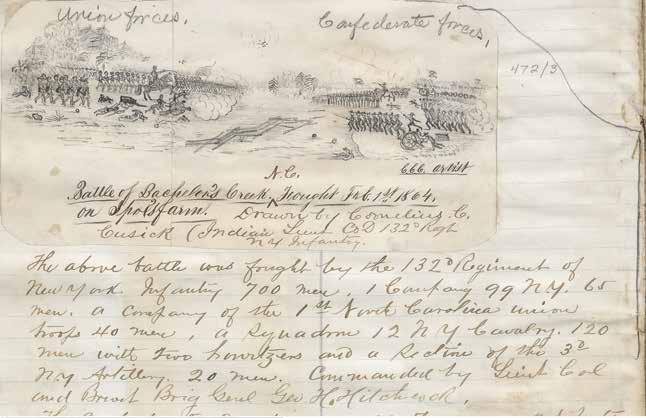 Union forces,
Confederate forces,
472/3
N.C.
666. artist
Battle of Bachelor's Creek, Fought Feb. 1st 1864.
on Spol's farm. Drawn by Cornelius C.
Cusick (Indian Lieut Co D 132d Regt
N Y Infantry.
The above battle was fought by the 132d Regiment of
New York Infantry 700 men, 1 Company 99 N.Y. 65
men. a company of the 1st North Carolina union
troops 40 men, a Squadron 12 N Y Cavalry. 120
men with two howitzers and a section of the 3d
N.Y Artillery, 20 men. Commanded by Lieut Col
and Brevet Brig Genl Geo H. Hitchcock,